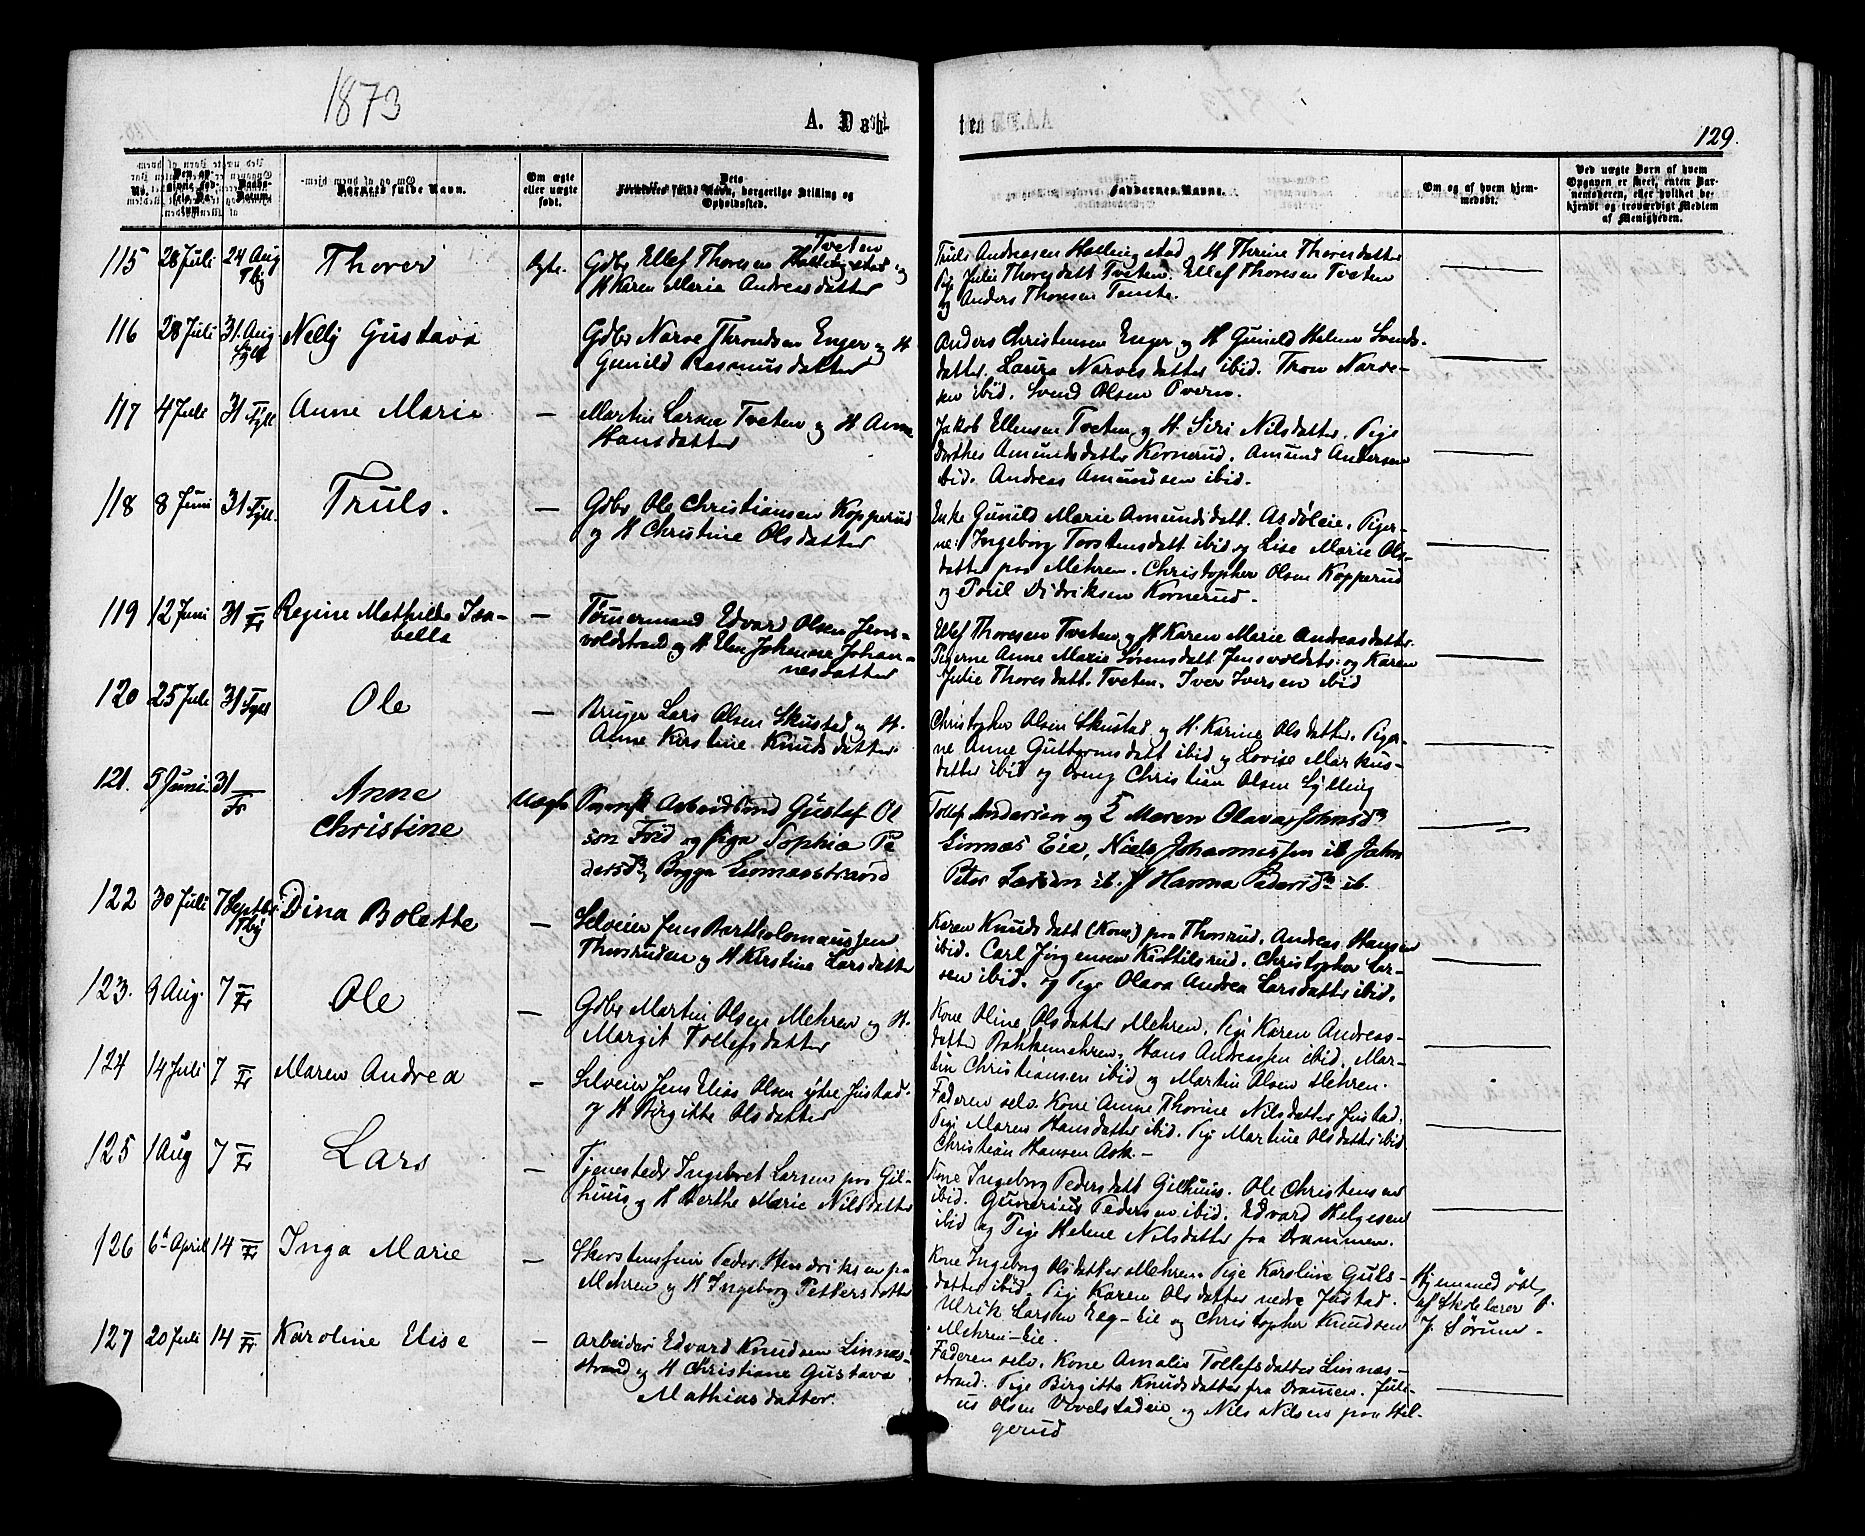 1873
A. Døb-
te.
129.
No.
Barnets fulde Navn.
Om ægte eller uægte født.
Opholdssted.
Faddernes Navne.
Om og af hvem hjemmedøbt.
Ved uægte Børn af hvem Opgaven er skeet, enten Barnemoderen, eller hvilket bekjendt og troværdigt Medlem af Menigheden.
115 28 Juli 24 Aug Thorer Ægte. Gdbr Ellef Thoresen Tveten og
H Karen Marie Andreasdatter
Truls Andreasen Hallingstad og H Therine Thoresdatter
Pige Julie Thoresdatt Tveten. Ellef Thoresen Tveten
og Anders Thoresen
116 28 Juli 31. Aug Nelly Gustava Gdbr Narve Throndsen Enger og H
Gunild Rasmusdatter
Anders Christensen Enger og H Gunild Helene Svends-
datter. Laura Narvesdatter ibid. Tron Narve-
sen ibid. Svend Olsen
117 4 Juli 31 Syll Anne Marie — Martin Larsen Tveten og H Anne
Hansdatter
Jakob Ellensen Tveten og H. Siri Nilsdatter. Pige
Dorthea Amundsdatter Kornerud. Amund Andersen
ibid. Andreas Amundsen ibid.
118 8 Juni 31 Syll. Truls. — Gdbr Ole Christiansen Kopperud
og H Christine Olsdatter
Enke Gunild Marie Amundsdatt. Asdøleie. Piger-
ne: Ingeborg Torstensdatt ibid og Lise Marie Ols-
datter paa Mehren. Christopher Olsen Kopperud
og Poul Didriksen Kornerud.
119 12 Juni 31 Fr Regine Mathilde Isa-
bella — Tømermand Edvard Olsen Jens-
voldstrand og H Elen Johanne Johan-
nesdatter
Ellef Thoresen Tveten og H Karen Marie Andreasdatter.
Pigerne Anne Marie Sørensdatt Jensvoldstr: og Karen
Julie Thoresdatt. Tveten. Iver Iversen ibid
120 25 Juli 31 Syll Ole — Bruger Lars Olsen Skustad og H.
Anne Kirstine Knudsdatter
Christopher Olsen Skustad og H. Karine Olsdatter. Piger-
ne Anne Guttormsdatt ibid og Lovise Markus-
datter ibid og Dreng Christian Olsen Sylling
121. 5 Juni 31 Fr Anne
Christine Uægte Svensk Arbeidsmd Gustaf Ol
son Frid og pige Sophia Pe
dersdr, Bygge Linnæsstrand
Tollef Andersen og Maren Olava Johnsdr
Linnæs Eie, Niels Johannessen ib John
Peter Larsen ib. P Hanna Pedersdr ib.
122 30 Juli 7 Septbr Dina Bolette — Selveier Jens Bartholomæussen
Thorsruden og H Kirstine Larsdatter
Karen Knudsdatt (Kone) paa Thorsrud. Andreas Hansen
ibid. Carl Jørgensen Kittilsrud. Christopher Lar-
sen ibid. og Pige Olava Andrea Larsdatter ibid.
123. 9 Aug. 7 Fr Ole — Gdbr Martin Olsen Mehren og H.
Margit Tollefsdatter
Kone Oline Olsdatter Mehren. Pige Karen Andreas-
datter Bakkemehren. Hans Andreassen ibid. Mar-
tin Christiansen ibid og Martin Olsen Mehren.
124 14 Juli 7 Fr Maren Andrea — Selveier Jens Elias Olsen ytre Justad.
og H Birgitte Olsdatter
Faderen selv. Kone Anne Thorine Nilsdatter Justad.
Pige Maren Hansdatter ibid. Pige Martine Olsdatter ibid.
Christian Hansen Ask. —
125 1 Aug 7 Fr Lars — Tjenestedr Ingebret Larsen paa Gil-
huus og H Berthe Marie Nilsdatter
Kone Ingeborg Pedersdatt Gilhuus. Ole Christensen
ibid. Gunerius Pedersen ibid. Edvard Helgesen
ibid og Pige Helene Nilsdatter fra Drammen.
126 6 April 14 Fr Inga Marie — Skorstensfeier Peder Hendriksen pa
Mehren og H Ingeborg Pettersdatter
Kone Ingeborg Olsdatter Mehren. Pige Karoline Guls-
datter ibid. Pige Karen Olsdatter nedre Justad.
Ulrik Larsen Eeg-Eie og Christopher Knudsen
Mehren-Eie.
Hjemmedøbt
af Skolelærer P.
J. Sørum.
127 20 Juli 14 Fr Karoline Elise — Arbeider Edvard Knudsen Linnæs-
strand og H Christiane Gustava
Mathiasdatter.
Faderen selv. Kone Amalie Tollefsdatter Linnæs-
strand. Pige Birgitte Knudsdatter fra Dramen. Juli-
us Olsen Vovelstadeie og Nils Nilsen paa Hel-
gerud